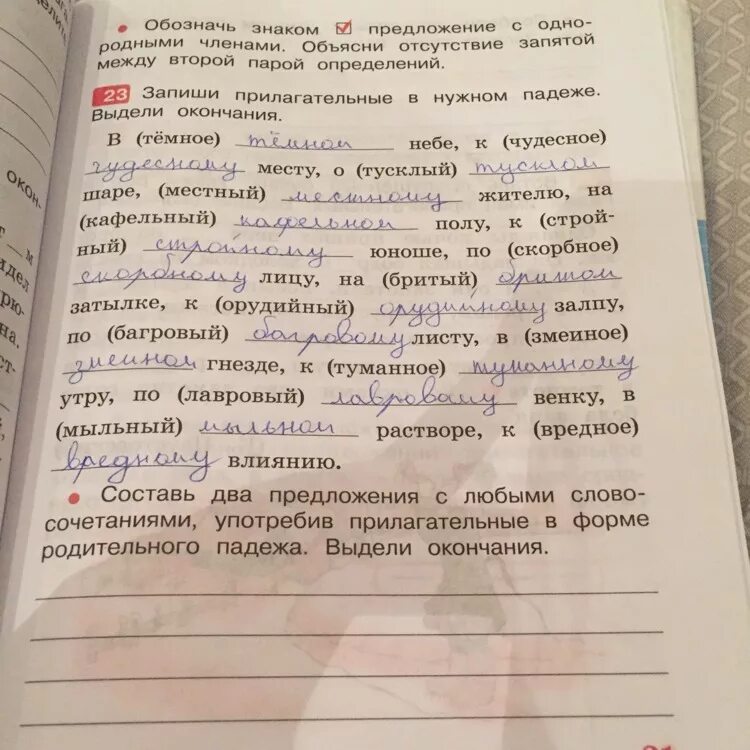 • Обозначь знаком ☑ предложение с одно-
родными членами. Объясни отсутствие запятой
между второй парой определений.
23 Запиши прилагательные в нужном падеже.
Выдели окончания.
В (тёмное) тёмном небе, к (чудесное)
чудесному месту, о (тусклый) тусклом
шаре, (местный) местному жителю, на
(кафельный) кафельном полу, к (строй-
ный) стройному юноше, по (скорбное)
скорбному лицу, на (бритый) бритом
затылке, к (орудийный) орудийному залпу,
по (багровый) багровому листу, в (змеиное)
змеином гнезде, к (туманное) туманному
утру, по (лавровый) лавровому венку, в
(мыльный) мыльном растворе, к (вредное)
вредному влиянию.
• Составь два предложения с любыми слово-
сочетаниями, употребив прилагательные в форме
родительного падежа. Выдели окончания.